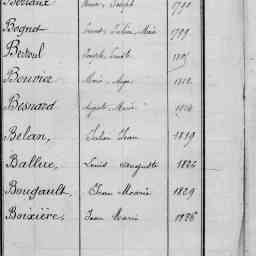 Joseph 1790
Bognet Julien Marie 1799
Bertoul Joseph
Bouvier Marie Ange 1812
Besnard Auguste Marie
Belan, Julien Jean 1819
Ballue, Louis Auguste 1826
Bougault, Jean Marie 1829
Boixière, Jean Marie 1826